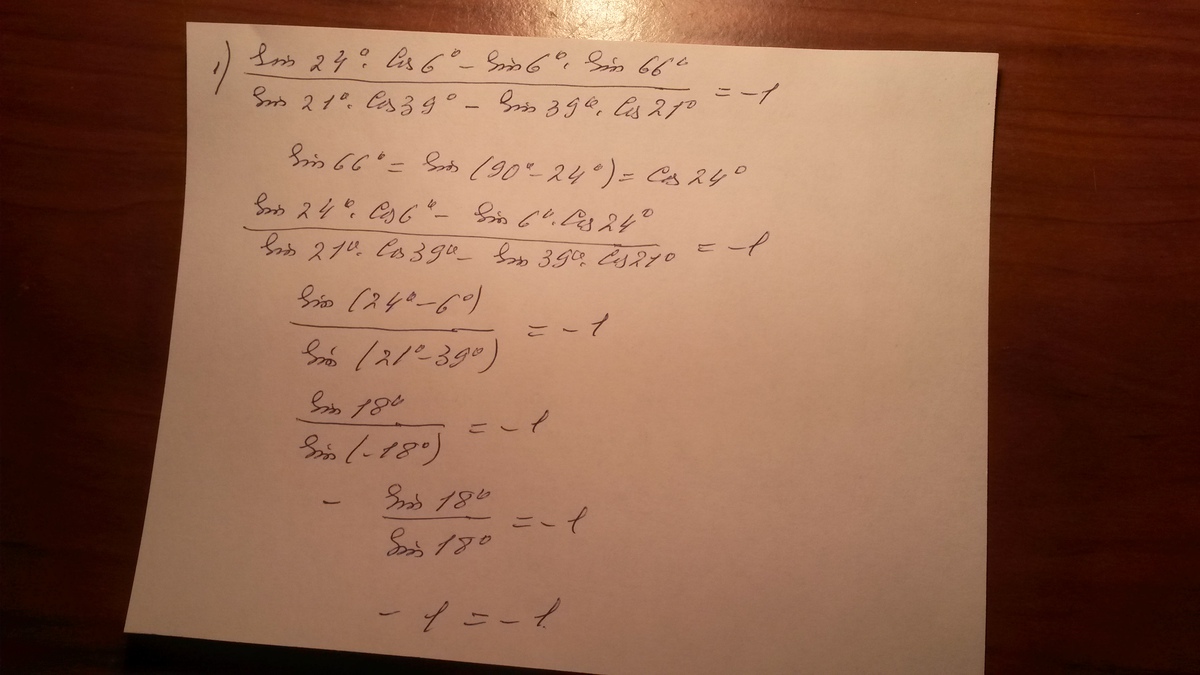 1) (sin 24° · cos 6° − sin 6° · sin 66°) / (sin 21° · cos 39° − sin 39° · cos 21°) = −1
sin 66° = sin (90° − 24°) = cos 24°
(sin 24° · cos 6° − sin 6° · cos 24°) / (sin 21° · cos 39° − sin 39° · cos 21°) = −1
sin (24° − 6°) / sin (21° − 39°) = −1
sin 18° / sin (−18°) = −1
− sin 18° / sin 18° = −1
− 1 = −1